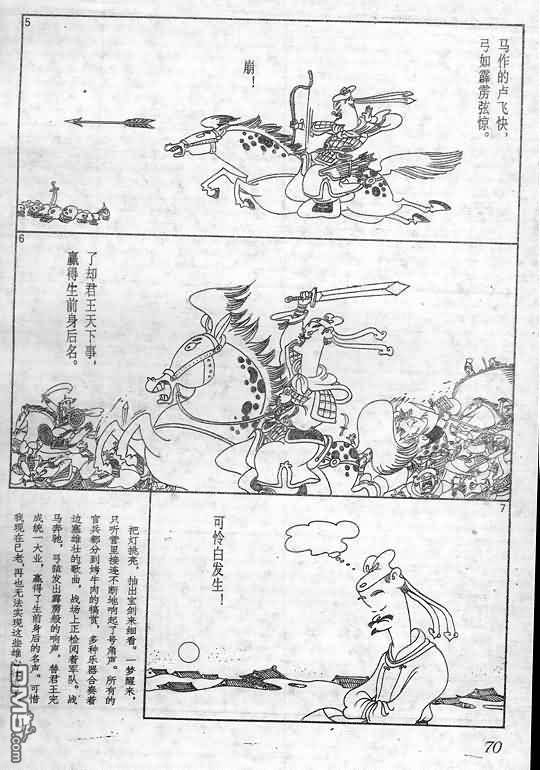 5
马作的卢飞快，
弓如霹雳弦惊。
崩！
6
了却君王天下事，
赢得生前身后名。
7
可怜白发生！
把灯挑亮，抽出宝剑来细看。一梦醒来，
只听营里接连不断地响起了号角声。所有的
官兵都分到烤牛肉的犒赏，多种乐器合奏着
边塞雄壮的歌曲，战场上正检阅着军队。战
马奔驰，弓箭发出霹雳般的响声，替君王完
成统一大业，赢得了生前身后的名声。可惜
我现在已老，再也无法实现这些雄
70